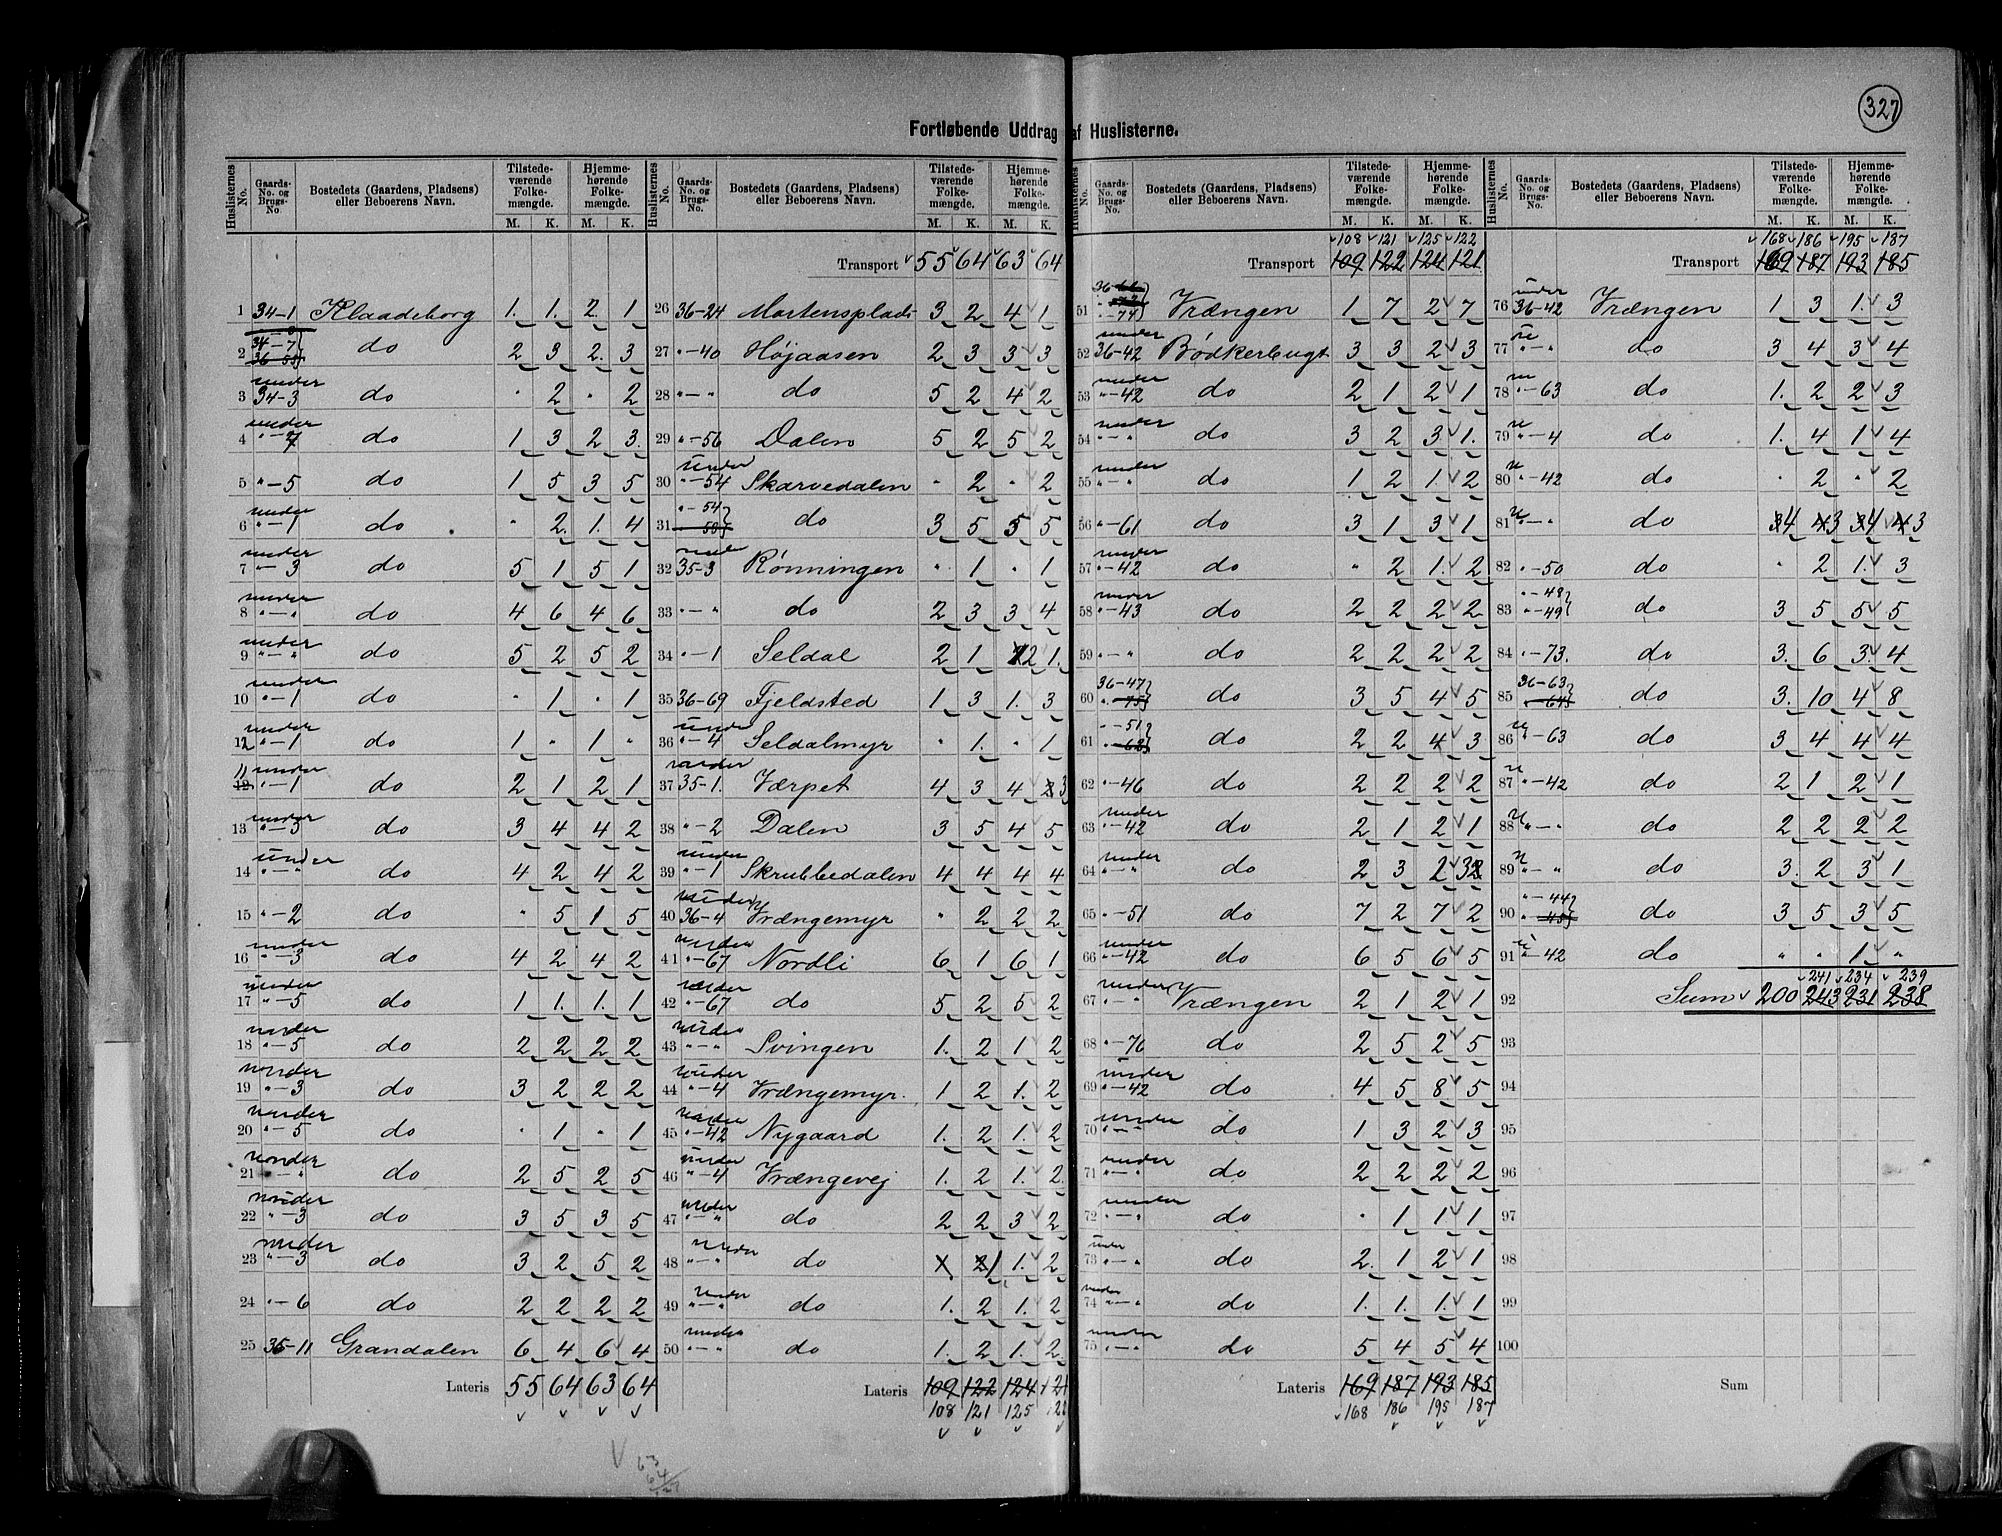 327
Fortløbende Uddrag af Huslisterne.
Huslisternes No. | Gaards-No. og Brugs-No. | Bostedets (Gaardens, Pladsens) eller Beboerens Navn. | Tilstedeværende Folkemængde. M. K. | Hjemmehørende Folkemængde. M. K.
1 34-1 Klaadeborg 1. 1. 2. 1
2 34-7 36-55 do 2 3 2. 3
3 under 34-3 do " 2 " 2
4 under "-7 do 1 3 2 3.
5 "-5 do 1 5 3 5
6 under "-1 do " 2. 1. 4
7 under "-3 do 5 1 5 1
8 under "-" do 4 6 4 6
9 under "-" do 5 2 5 2
10 under "-1 do " 1 " 1
12 under "-1 do 1 " 1 "
11 under "-1 do 2 1 2 1
13 under "-3 do 3 4 4 2
14 under "-" do 4 2 4 2
15 "-2 do " 5 1 5
16 under "-3 do 4 2 4 2
17 under "-5 do 1 1. 1. 1
18 under "-5 do 2 2 2 2
19 under "-3 do 3 2 2 2
20 under "-5 do " 1 " 1
21 under "-" do 2 5 2 5
22 under "-3 do 3 5 3 5
23 under "-3 do 3 2 5 2
24 "-6 do 2 2 2 2
25 35-11 Grandalen 6 4 6 4
Lateris 55 64 63 64
Transport 55 64 63 64
26 36-24 Mortensplads 3 2 4 1
27 "-40 Højaasen 2 3 3 3
28 "-" do 5 2 4 2
29 "-56 Dalen 5 2 5 2
30 under "-54 Skarvedalen " 2 " 2
31 "-54 do 3 5 5 5
32 under 35-3 Rønningen " 1 " 1
33 "-" do 2 3 3 4
34 "-1 Seldal 2 1 2 1.
35 36-69 Fjeldsted 1 3 1. 3
36 under "-4 Seldalmyr " 1. " 1
37 under 35-1. Værpet 4 3 4 3
38 "-2 Dalen 3 5 4 5
39 under "-1 Skrubbedalen 4 4 4 4
40 under 36-4 Vrængemyr " 2 2 2
41 under "-67 Nordli 6 1 6 1
42 under "-67 do 5 2 5 2
43 under "-" Svingen 1. 2 1 2
44 under "-4 Vrængemyr. 1 2 1. 2
45 under "-42 Nygaard 1. 2 1. 2
46 under "-4 Vrængevej 1. 2 1. 2.
47 under "-" do 2 2 3 2
48 under "-" do 1 1. 2
49 under "-" do 1. 2 1. 2
50 under "-" do 1. 2 1. 2
Lateris 109 122 124 121
108 121 125 122
108 121 125 122
Transport 109 122 124 121
51 36 "-74 Vrængen 1 7 2 7
52 under 36-42 Bødkerbugt 3 3 2 3
53 under "-42 do 2 1 2 1
54 under "-" do 3 2 3 1.
55 under "-" do 1 2 1 2
56 "-61 do 3 1 3 1
57 under "-42 do " 2 1. 2
58 under "-43 do 2 2 2 2
59 "-" do 2 2 2 2
60 36-47 "-75 do 3 5 4 5
61 "-51 do 2 2 4 3
62 "-46 do 2 2 2 2
63 under "-42 do 2 1 2 1
64 under "-" do 2 3 2 3
65 "-51 do 7 2 7 2
66 under "-42 do 6 5 6 5
67 under "-" Vrængen 2 1 2 1
68 "-76 do 2 5 2 5
69 under "-42 do 4 5 8 5
70 under "-" do 1 3 2 3
71 under "-" do 2 2 2 2
72 under "-" do " 1 1 1
73 under "-" do 2. 1 2 1
74 under "-" do 1. 1. 1. 1
75 under "-" do 5 4 5 4
Lateris 169 187 193 185
168 186 195 187
168 186 195 187
Transport 169 187 193 185
76 under 36-42 Vrængen 1 3 1. 3
77 "-" do 3 4 3 4
78 u "-63 do 1. 2 2 3
79 u "-4 do 1. 4 1 4
80 u "-42 do " 2 " 2
81 u "-" do 4 3 4 3
82 "-50 do " 2 1. 3
83 "-48 "-49 do 3 5 5 5
84 "-73. do 3. 6 3. 4
85 36-63 "-64 do 3. 10 4 8
86 u "-63 do 3 4 4 4
87 u "-42 do 2 1 2 1
88 u "-" do 2 2 2 2
89 u "-" do 3. 2 3 1
90 "-44 "-45 do 3 5 3 5
91 u "-42 do " " 1 "
241 234 239
92 Sum 200 243 231 238
93
94
95
96
97
98
99
100
Sum
63
64